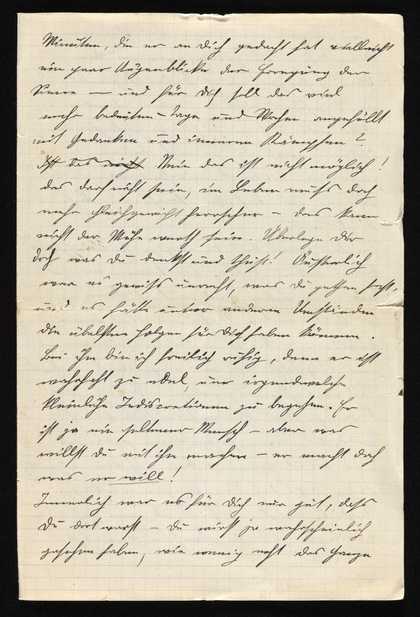 Minuten, die er an dich gedacht hat vielleicht
ein paar Augenblicke der Erregung der
Sinne — und für Dich soll das viel
mehr bedeuten – Tage und Wochen angefüllt
mit Gedanken und inneren Kämpfen?
Ist das nicht Nein das ist nicht möglich!
das darf nicht sein, im Leben muß doch
mehr Gleichgewicht herrschen – das kann
nicht der Mühe werth sein. Überlege Dir
doch was du denkst und thust! Äusserlich
war es gewiss unrecht, was du gethan hast,
und es hätte unter anderen Umständen
die übelsten Folgen für Dich haben können.
Bei ihm bin ich freilich ruhig, denn er ist
wahrhaft zu edel, um irgendwelche
kleinliche Indiscretionen zu begehen. Er
ist ja ein seltener Mensch – aber was
willst du mit ihm machen – er macht doch
was er will!
Innerlich war es für Dich nur gut, dass
Du dort warst – du wirst ja wahrscheinlich
gesehen haben, wie wenig recht das Ganze